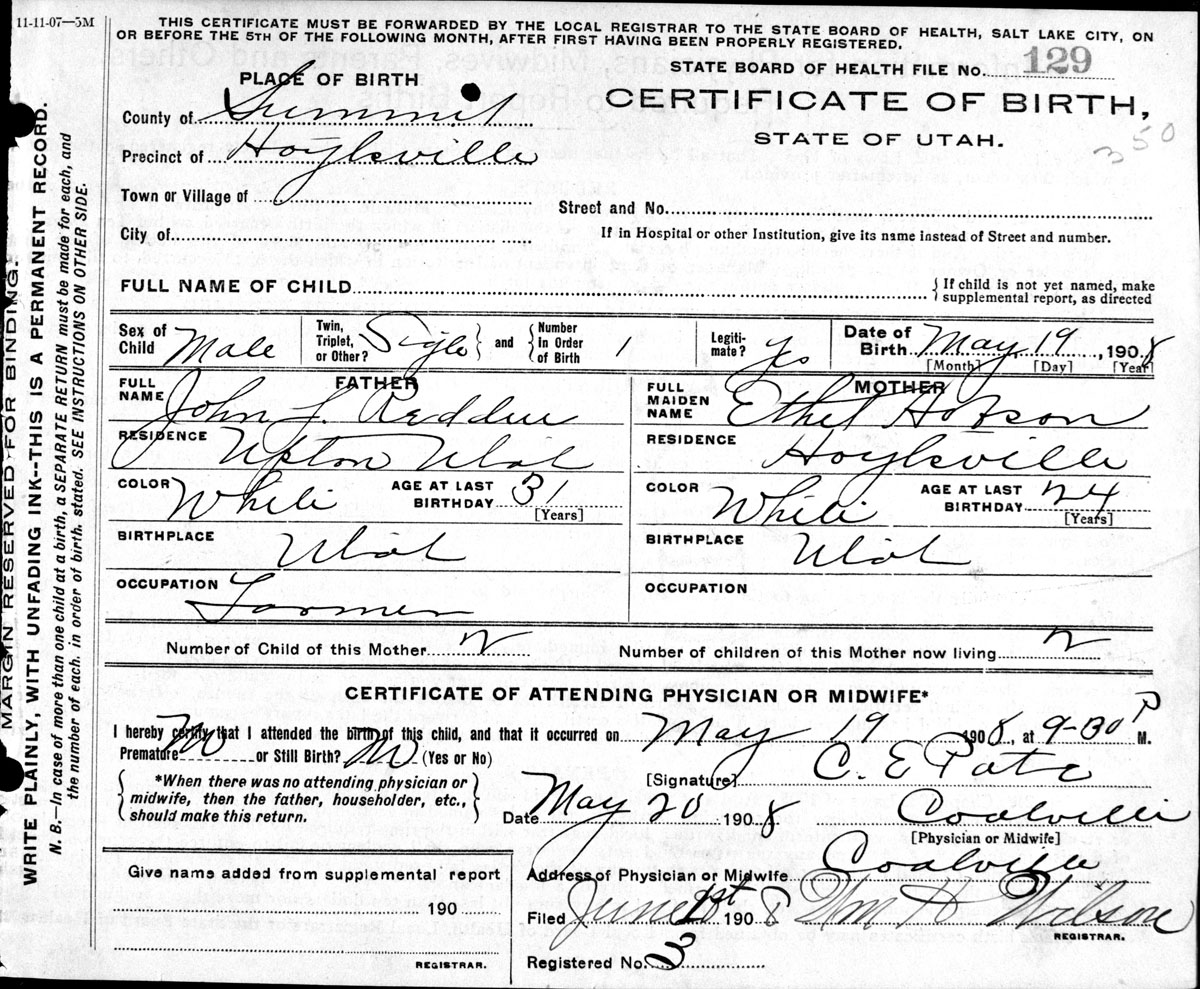 11-11-07—5M
THIS CERTIFICATE MUST BE FORWARDED BY THE LOCAL REGISTRAR TO THE STATE BOARD OF HEALTH, SALT LAKE CITY, ON
OR BEFORE THE 5TH OF THE FOLLOWING MONTH, AFTER FIRST HAVING BEEN PROPERLY REGISTERED.
STATE BOARD OF HEALTH FILE No. 129
PLACE OF BIRTH
CERTIFICATE OF BIRTH,
STATE OF UTAH.
350
County of Summit
Precinct of Hoytsville
Town or Village of
Street and No.
City of
If in Hospital or other Institution, give its name instead of Street and number.
FULL NAME OF CHILD
{If child is not yet named, make
supplemental report, as directed
Sex of Child Male
Twin, Triplet, or Other? Single } and { Number In Order of Birth 1
Legiti-mate? Yes
Date of Birth May 19, 1908
[Month] [Day] [Year]
FATHER
FULL NAME John J.
MOTHER
FULL MAIDEN NAME Ethel Hobson
RESIDENCE Upton Utah
RESIDENCE Hoytsville
COLOR White
AGE AT LAST BIRTHDAY 31
[Years]
COLOR White
AGE AT LAST BIRTHDAY 24
[Years]
BIRTHPLACE Utah
BIRTHPLACE Utah
OCCUPATION Farmer
OCCUPATION
Number of Child of this Mother 2
Number of children of this Mother now living 2
CERTIFICATE OF ATTENDING PHYSICIAN OR MIDWIFE*
I hereby certify that I attended the birth of this child, and that it occurred on May 19 1908, at 9-30 P M.
Premature No or Still Birth? No (Yes or No)
{ *When there was no attending physician or
midwife, then the father, householder, etc.,
should make this return. }
[Signature] C. E. Pate
Date May 20 1908
Coalville
[Physician or Midwife]
Address of Physician or Midwife Coalville
Give name added from supplemental report
190
REGISTRAR.
Filed June 1st 1908 Wm H Wilson
REGISTRAR.
Registered No. 3
MARGIN RESERVED FOR BINDING.
WRITE PLAINLY, WITH UNFADING INK--THIS IS A PERMANENT RECORD.
N. B.—In case of more than one child at a birth, a SEPARATE RETURN must be made for each, and
the number of each, in order of birth, stated. SEE INSTRUCTIONS ON OTHER SIDE.